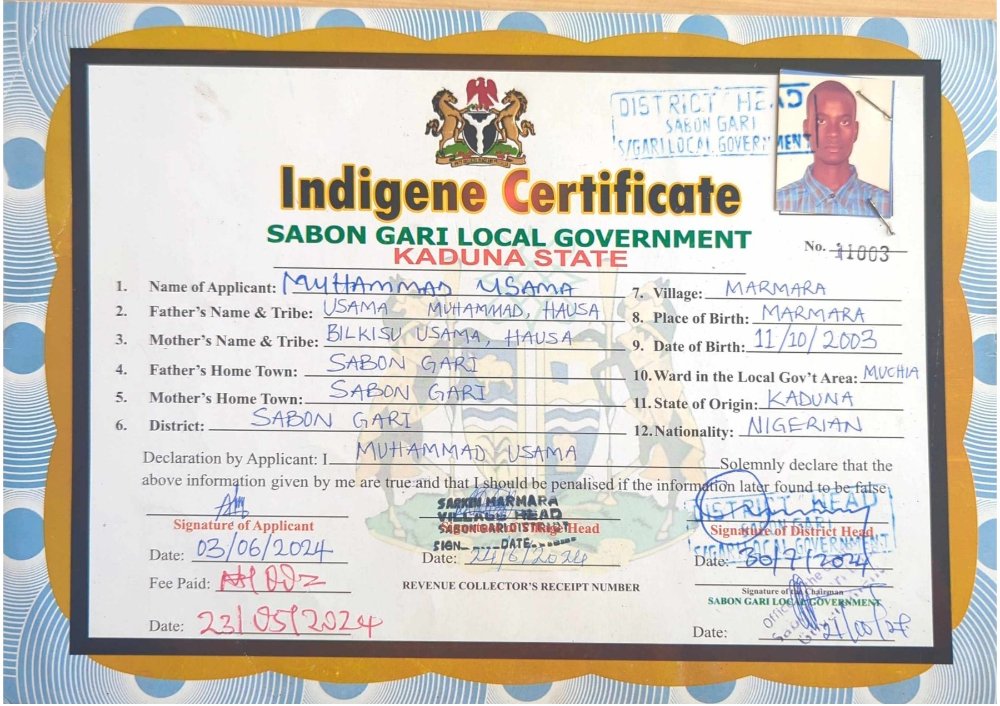 DISTRICT HEAD
SABON GARI
S/GARI LOCAL GOVERNMENT
Indigene Certificate
SABON GARI LOCAL GOVERNMENT
KADUNA STATE
No. 11003
1. Name of Applicant: MUHAMMAD USAMA
2. Father's Name & Tribe: USAMA MUHAMMAD, HAUSA
3. Mother's Name & Tribe: BILKISU USAMA, HAUSA
4. Father's Home Town: SABON GARI
5. Mother's Home Town: SABON GARI
6. District: SABON GARI
7. Village: MARMARA
8. Place of Birth: MARMARA
9. Date of Birth: 11/10/2003
10. Ward in the Local Gov't Area: MUCHIA
11. State of Origin: KADUNA
12. Nationality: NIGERIAN
Declaration by Applicant: I MUHAMMAD USAMA Solemnly declare that the
above information given by me are true and that I should be penalised if the information later found to be false
Signature of Applicant
Date: 03/06/2024
Fee Paid:
Date: 23/05/2024
SARKIN MARMARA
VILLAGE HEAD
SABON GARI DISTRICT
SIGN DATE
Head
Date: 24/6/2024
REVENUE COLLECTOR'S RECEIPT NUMBER
DISTRICT HEAD
SABON GARI
Signature of District Head
S/GARI LOCAL GOVERNMENT
Date: 30/7/2024
Signature of the Chairman
SABON GARI LOCAL GOVERNMENT
Date: